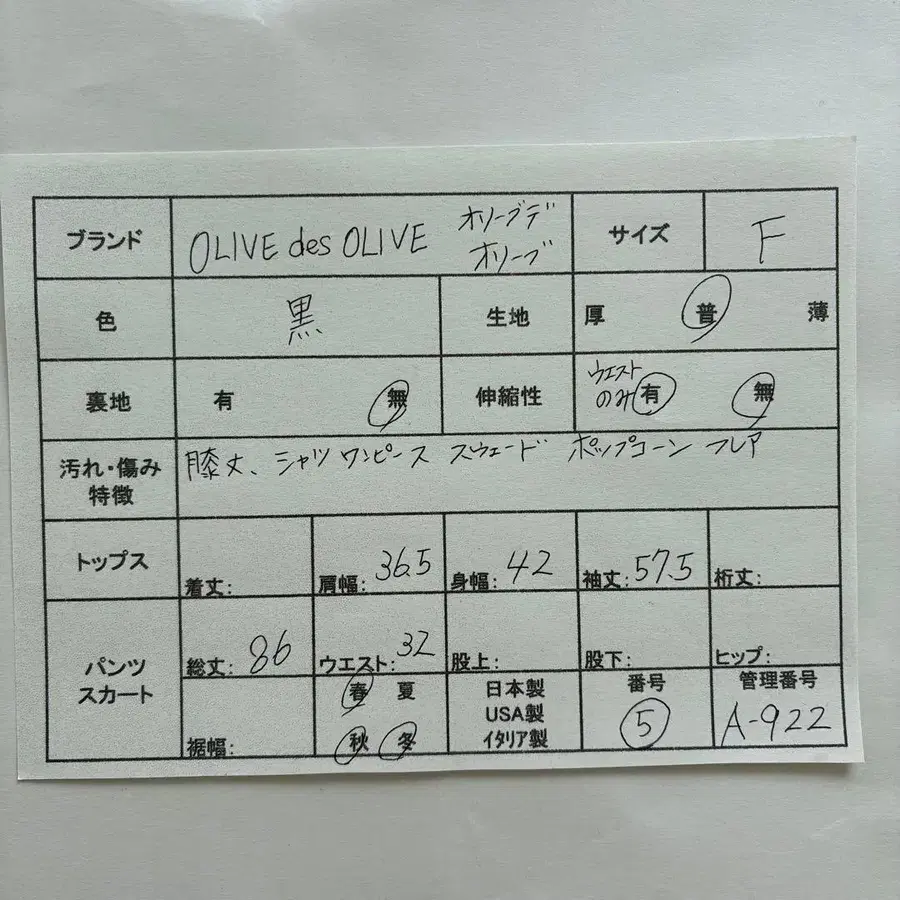 ブランド OLIVE des OLIVE オリーブデ サイズ F
オリーブ
色 黒 生地 厚 普 薄
裏地 有 無 伸縮性 ウエスト
のみ 有 無
汚れ・傷み 膝丈、シャツワンピース スウェード ポップコーン フレア
特徴
トップス 着丈: 肩幅: 36.5 身幅: 42 袖丈: 57.5 裄丈:
パンツ
スカート
総丈: 86 ウエスト: 32 股上: 股下: ヒップ:
裾幅: 春 夏
秋 冬
日本製
USA製
イタリア製
番号
5
管理番号
A-922